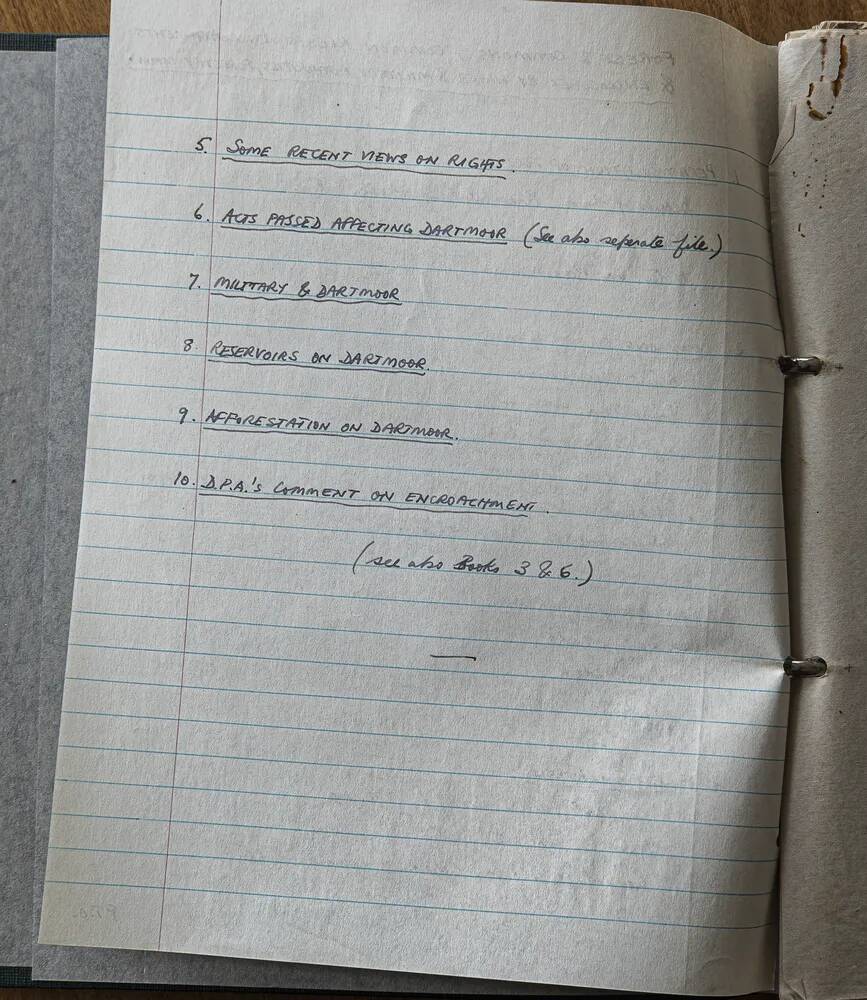 5. SOME RECENT VIEWS ON RIGHTS.
6. ACTS PASSED AFFECTING DARTMOOR (See also seperate file.)
7. MILITARY & DARTMOOR
8. RESERVOIRS ON DARTMOOR.
9. AFFORESTATION ON DARTMOOR.
10. D.P.A.'s COMMENT ON ENCROACHMENT.
(see also Books 3 & 6.)